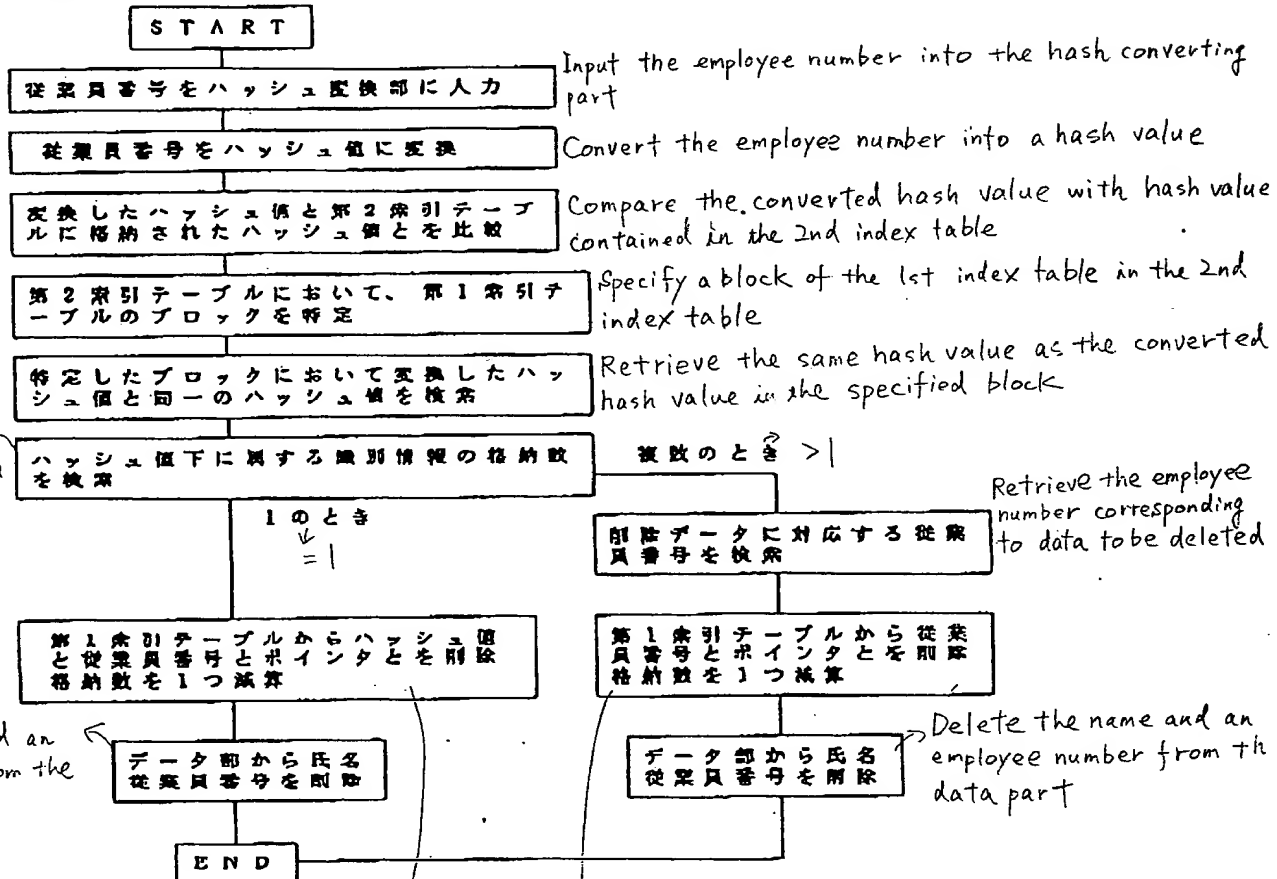 START
従業員番号をハッシュ変換部に入力
Input the employee number into the hash converting
part
従業員番号をハッシュ値に変換
Convert the employee number into a hash value
変換したハッシュ値と第2索引テーブ
ルに格納されたハッシュ値とを比較
Compare the converted hash value with hash value
contained in the 2nd index table
第2索引テーブルにおいて、第1索引テ
ーブルのブロックを特定
Specify a block of the 1st index table in the 2nd
index table
特定したブロックにおいて変換したハッ
シュ値と同一のハッシュ値を検索
Retrieve the same hash value as the converted
hash value in the specified block
ハッシュ値下に属する識別情報の格納数
を検索
複数のとき >1
1のとき
=1
削除データに対応する従業
員番号を検索
Retrieve the employee
number corresponding
to data to be deleted
第1索引テーブルからハッシュ値
と従業員番号とポインタとを削除
格納数を1つ減算
第1索引テーブルから従業
員番号とポインタとを削除
格納数を1つ減算
d an
om the
データ部から氏名
従業員番号を削除
データ部から氏名
従業員番号を削除
Delete the name and an
employee number from th
data part
END